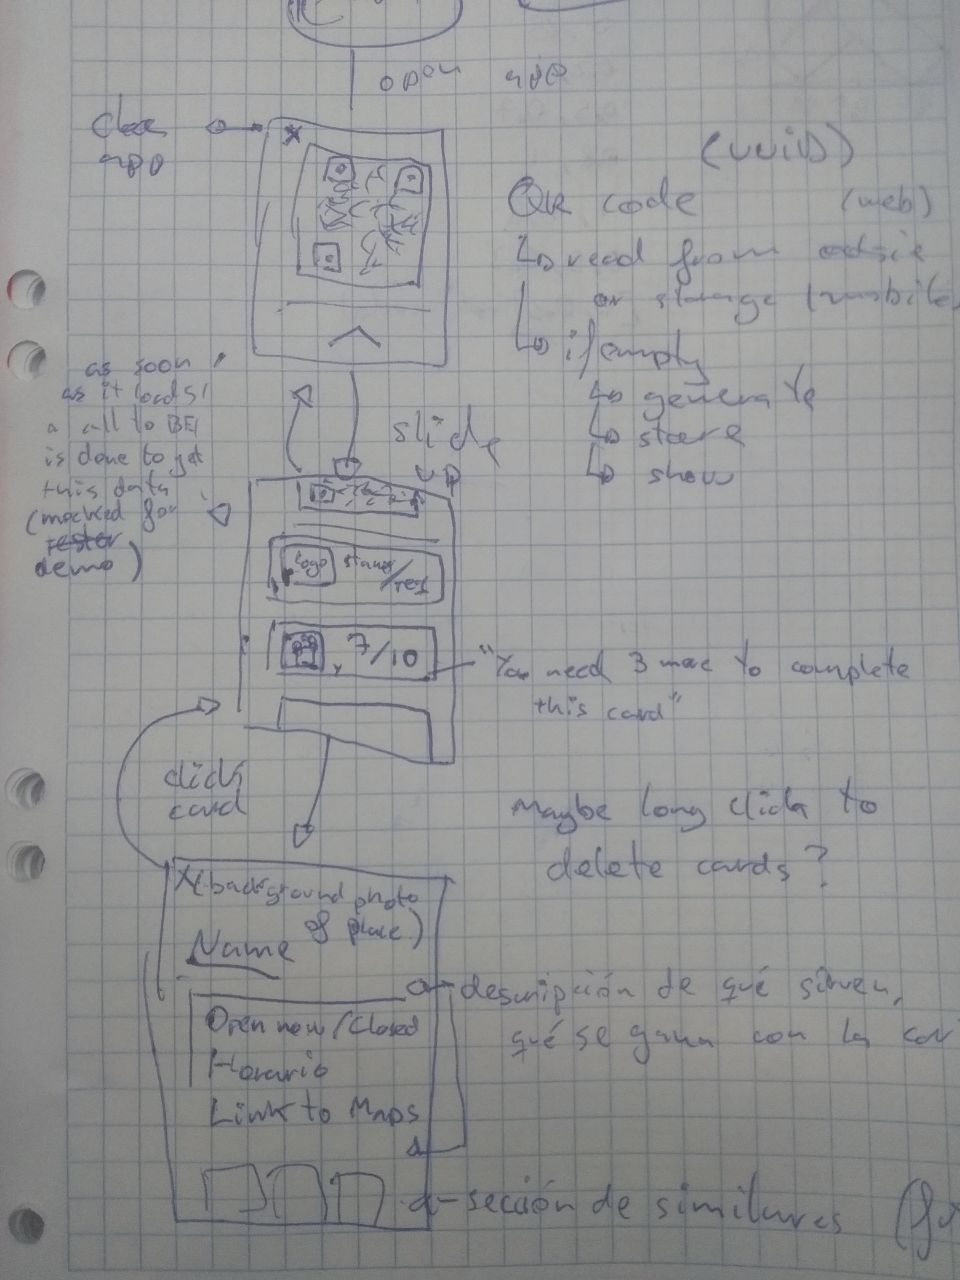 open app
Close
app
X
(UUID)
QR code (web)
read from cookie
or storage (mobile)
if empty
generate
store
show
as soon
as it loads,
a call to BE
is done to get
this data
(mocked for
demo)
slide
up
Logo
7/10
"You need 3 more to complete
this card"
click
card
Maybe long click to
delete cards?
X (background photo
of place)
Name
Open now/Closed
Horario
Link to Maps
descripción de qué sirven,
qué se gana con la
sección de similares